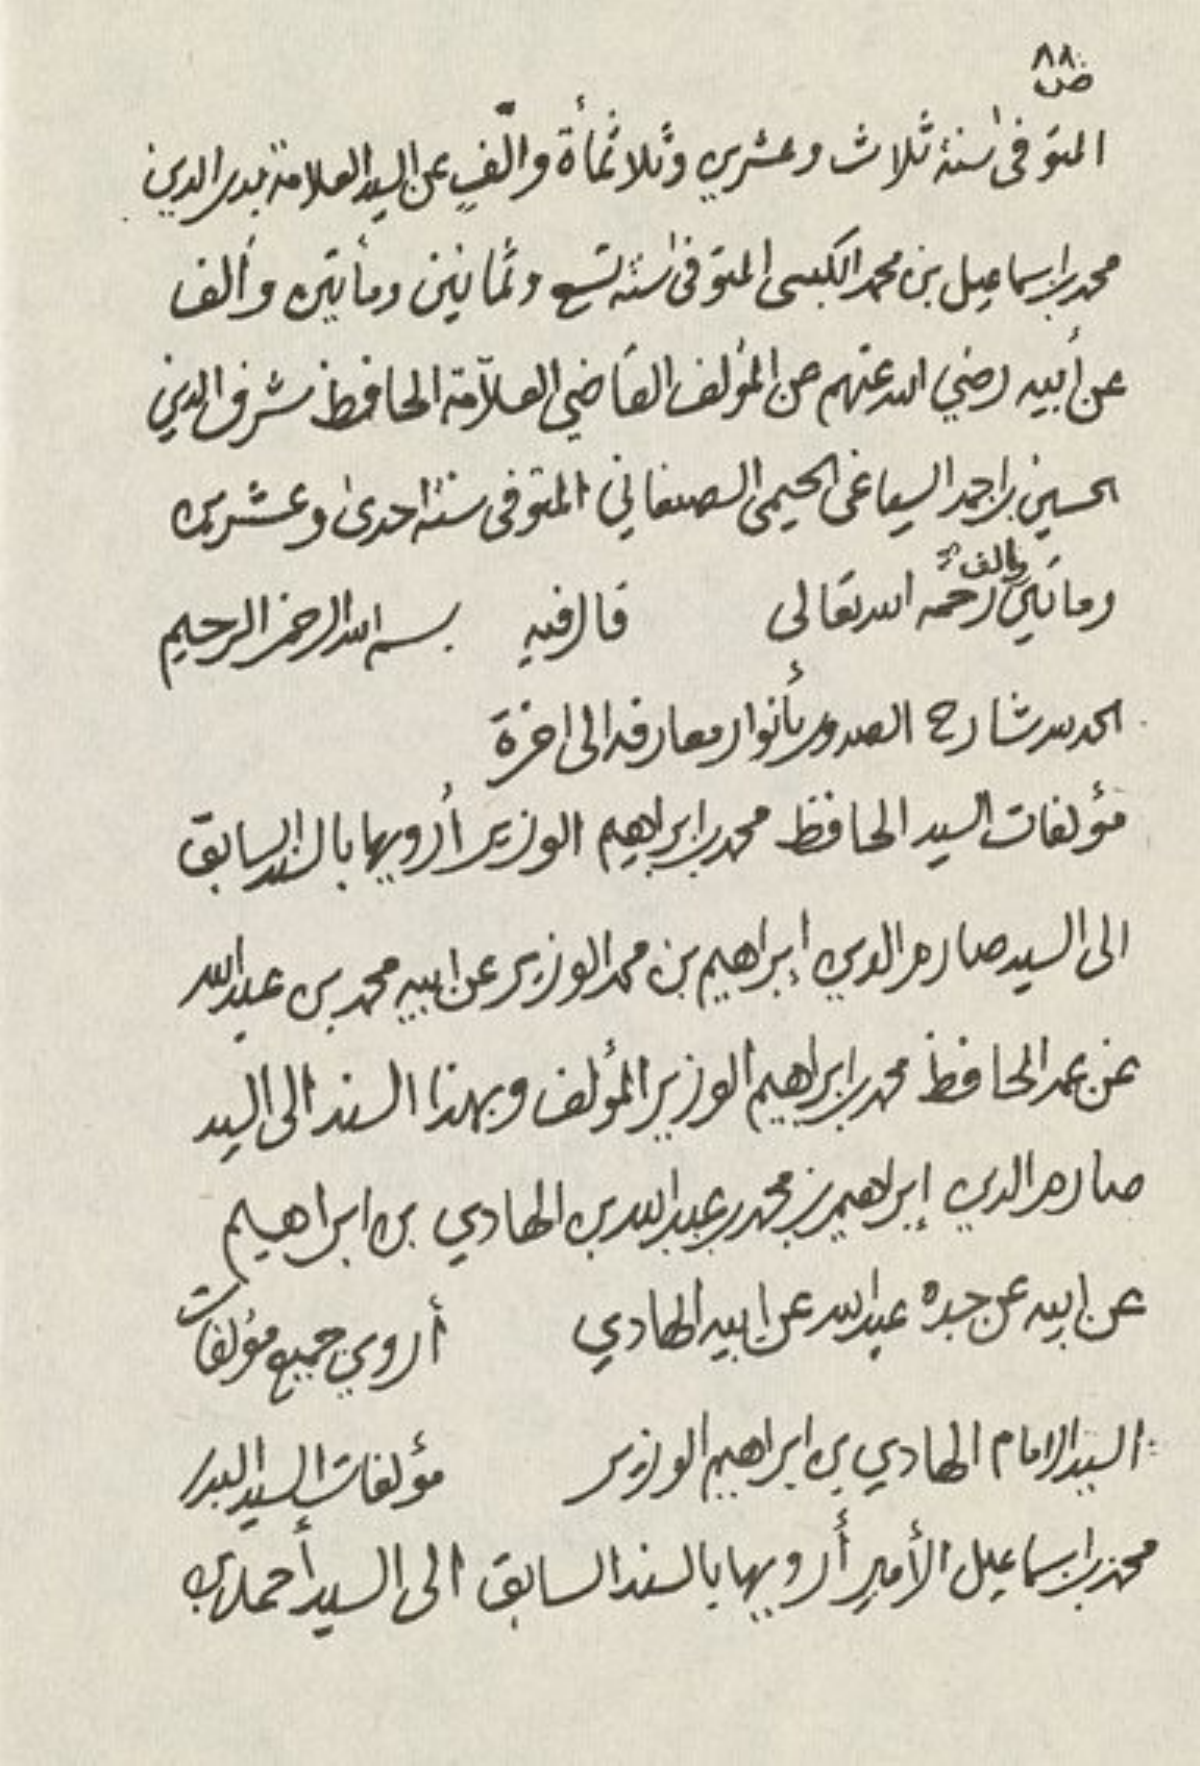 ٨٨
ص
المتوفى سنة ثلاث وعشرين وثلاثمأة والف عن السيد العلامة بدر الدين
محمد بن اسماعيل بن محمد الكبسى المتوفى سنة تسع وثمانين ومأتين وألف
عن أبيه رضي الله عنهم عن المؤلف القاضي العلامة الحافظ شرف الدين
الحسين بن احمد السياغى الحيمى الصنعاني المتوفى سنة احدى وعشرين
ومأتين والف رحمه الله تعالى قال فيه بسم الله الرحمن الرحيم
الحمد لله شارح الصدور بأنوار معارفه الى اخرة
مؤلفات السيد الحافظ محمد بن ابراهيم الوزير أرويها بالسند السابق
الى السيد صارم الدين إبراهيم بن محمد الوزير عن ابيه محمد بن عبد الله
عن عمه الحافظ محمد بن ابراهيم الوزير المؤلف وبهذا السند الى السيد
صارم الدين إبراهيم بن محمد بن عبد الله بن الهادي بن ابراهيم
عن ابيه عن جده عبد الله عن ابيه الهادي أروي جميع مؤلفات
السيد الامام الهادي بن ابراهيم الوزير مؤلفات السيد البدر
محمد بن اسماعيل الأمير أرويها بالسند السابق الى السيد أحمد بن